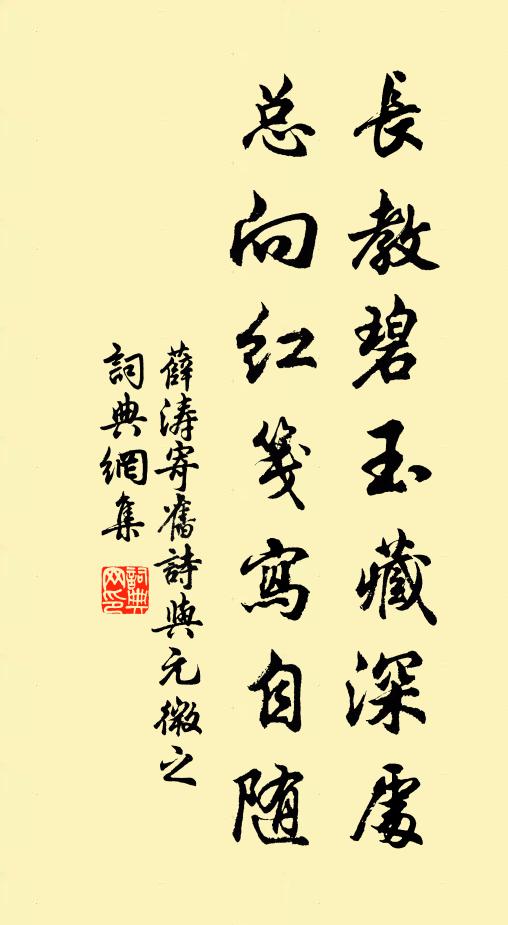 長教碧玉藏深處
总向红箋寫自随
薛涛寄舊詩與元微之
詞典網集
詞典网印